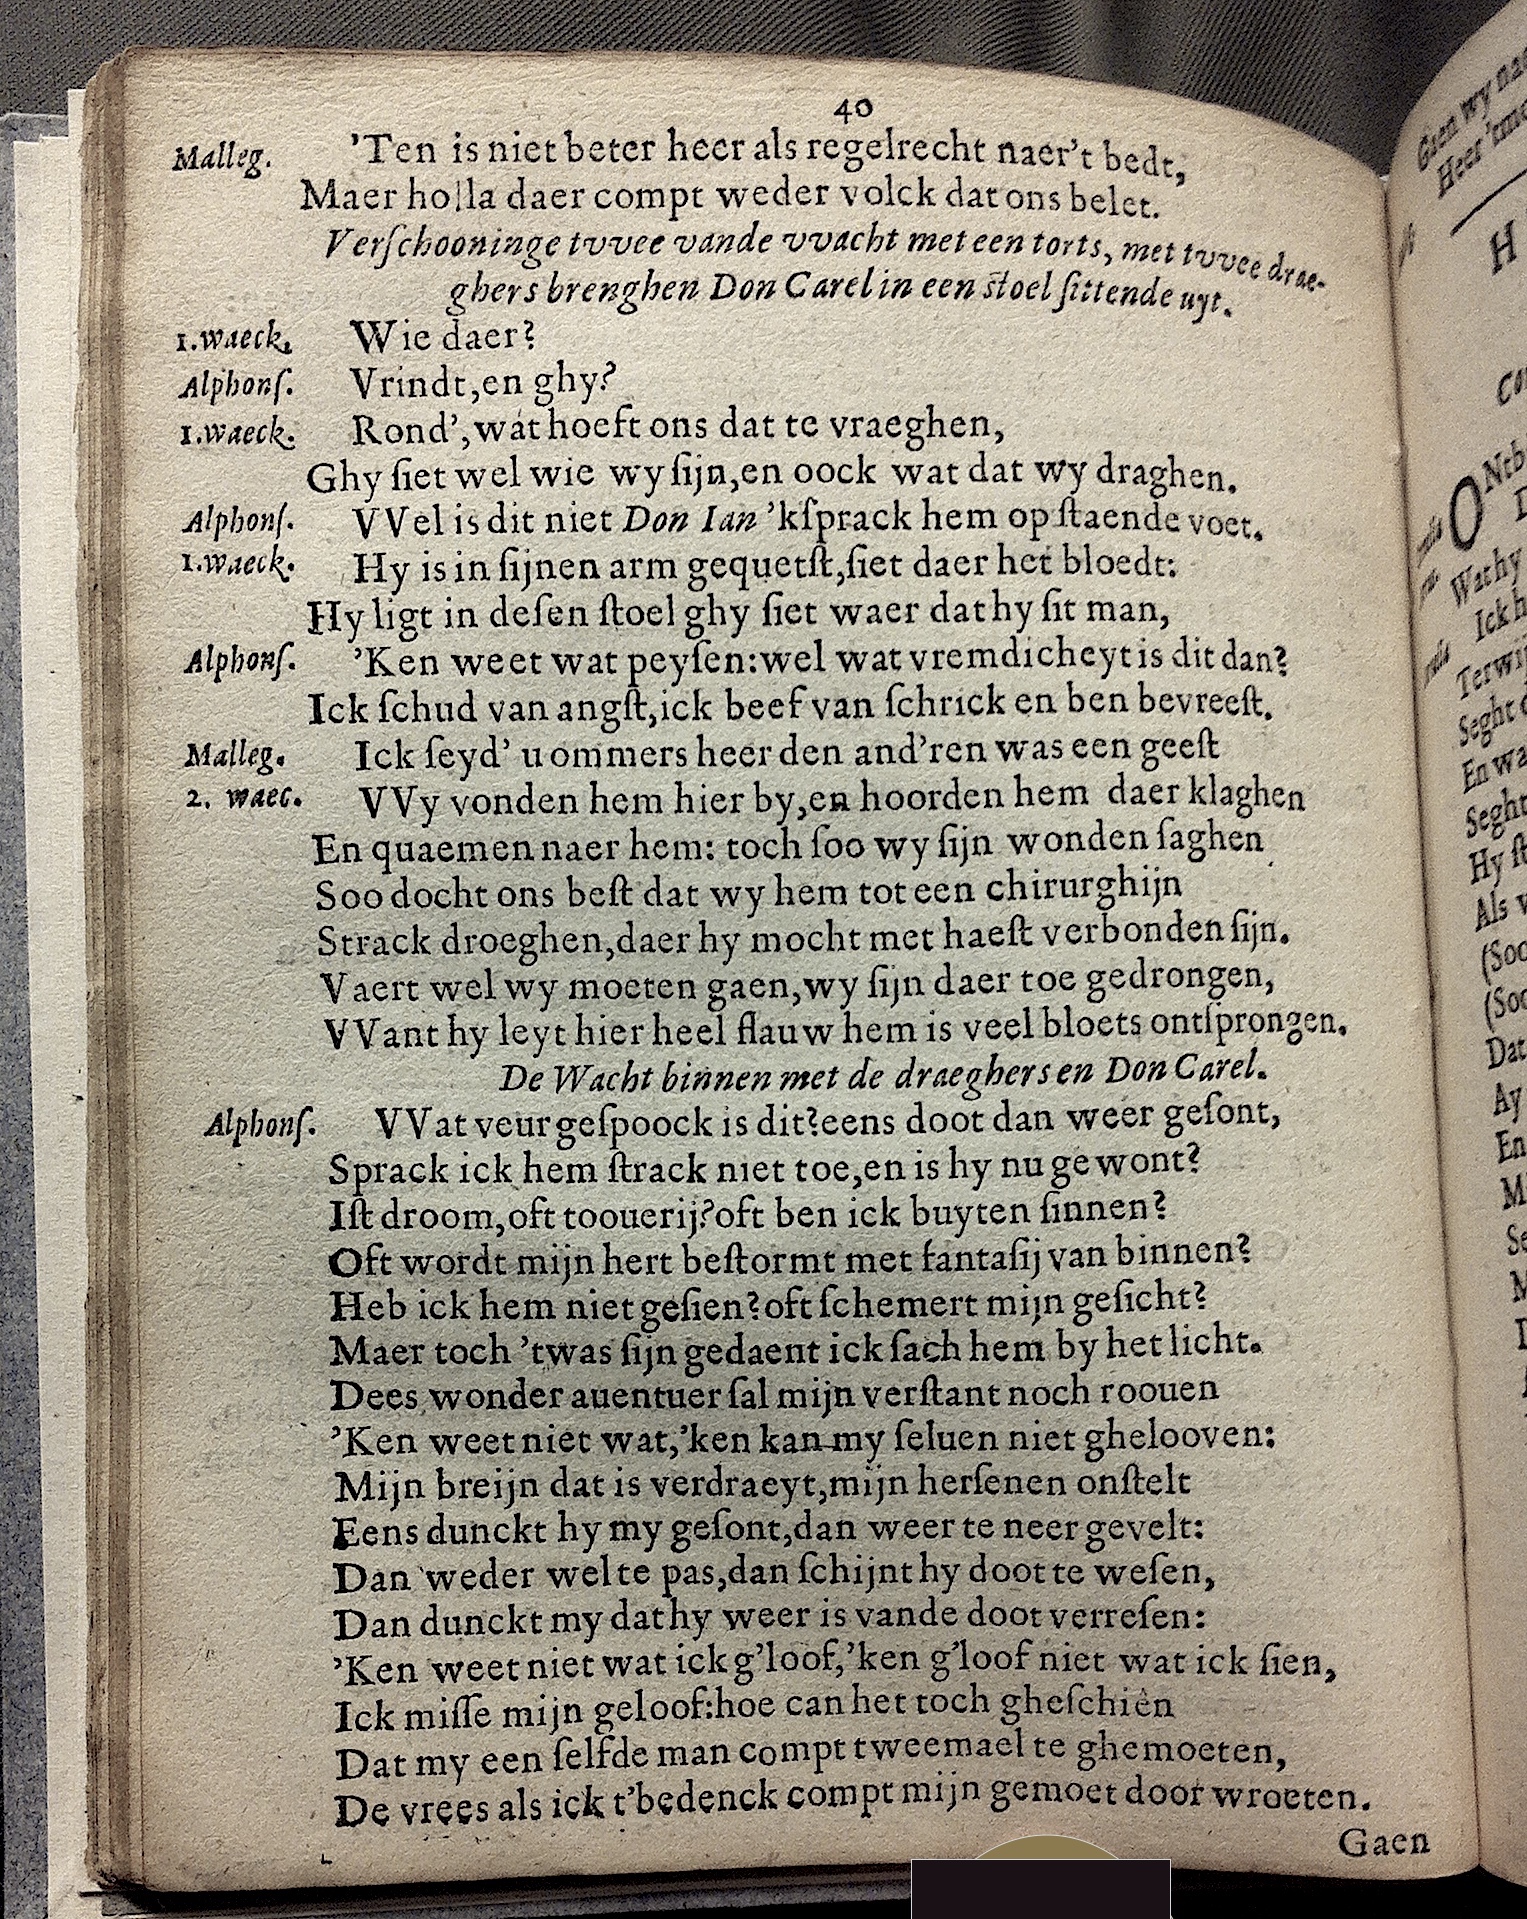 40
Malleg. 'Ten is niet beter heer als regelrecht naer't bedt,
Maer holla daer compt weder volck dat ons belet.
Verſchooninge tvvee vande vvacht met een torts, met tvvee drae-
ghers brenghen Don Carel in een stoel ſittende uyt.
1.waeck. Wie daer?
Alphonſ. Vrindt,en ghy?
1.waeck. Rond',wat hoeft ons dat te vraeghen,
Ghy ſiet wel wie wy ſijn,en oock wat dat wy draghen.
Alphonſ. VVel is dit niet Don Ian 'kſprack hem op ſtaende voet.
1.waeck. Hy is in ſijnen arm gequetſt,ſiet daer het bloedt:
Hy ligt in deſen ſtoel ghy ſiet waer dat hy ſit man,
Alphonſ. 'Ken weet wat peyſen:wel wat vremdicheyt is dit dan?
Ick ſchud van angſt,ick beef van ſchrick en ben bevreeſt.
Malleg. Ick ſeyd' u ommers heer den and'ren was een geeſt
2. waec. VVy vonden hem hier by,en hoorden hem daer klaghen
En quaemen naer hem: toch ſoo wy ſijn wonden ſaghen
Soo docht ons beſt dat wy hem tot een chirurghijn
Strack droeghen,daer hy mocht met haeſt verbonden ſijn.
Vaert wel wy moeten gaen,wy ſijn daer toe gedrongen,
VVant hy leyt hier heel flauw hem is veel bloets ontſprongen.
De Wacht binnen met de draeghers en Don Carel.
Alphonſ. VVat veur geſpoock is dit?eens doot dan weer geſont,
Sprack ick hem ſtrack niet toe,en is hy nu gewont?
Iſt droom,oft toouerij?oft ben ick buyten ſinnen?
Oft wordt mijn hert beſtormt met fantaſij van binnen?
Heb ick hem niet geſien?oft ſchemert mijn geſicht?
Maer toch 'twas ſijn gedaent ick ſach hem by het licht.
Dees wonder auentuer ſal mijn verſtant noch roouen
'Ken weet niet wat,'ken kan my ſeluen niet ghelooven:
Mijn breijn dat is verdraeyt,mijn herſenen onſtelt
Eens dunckt hy my geſont,dan weer te neer gevelt:
Dan weder wel te pas,dan ſchijnt hy doot te weſen,
Dan dunckt my dat hy weer is vande doot verreſen:
'Ken weet niet wat ick g'loof,'ken g'loof niet wat ick ſien,
Ick miſſe mijn geloof:hoe can het toch gheſchiên
Dat my een ſelfde man compt tweemael te ghemoeten,
De vrees als ick t'bedenck compt mijn gemoet door wroeten.
Gaen